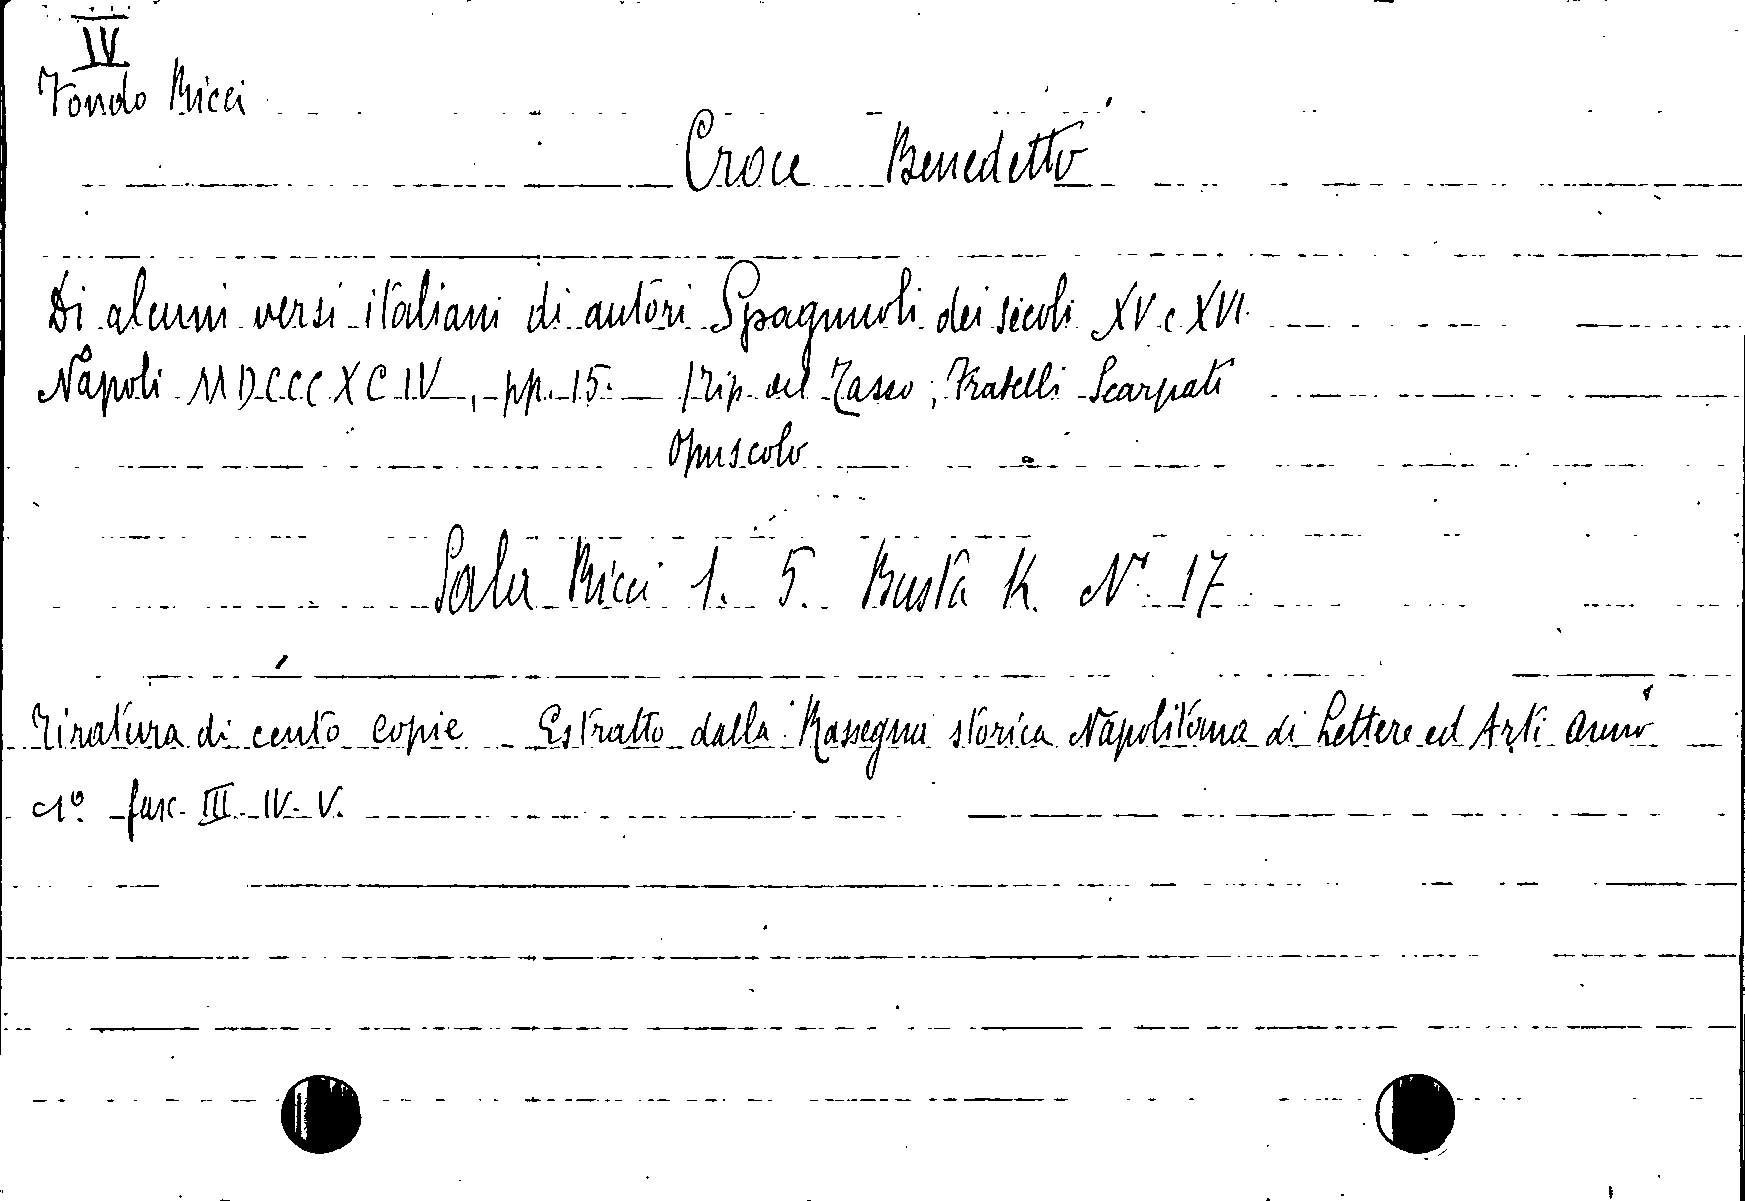 IV
Fondo Ricci
Croce Benedetto
Di alcuni versi italiani di autori Spagnuoli dei secoli XV e XVI.
Napoli MDCCCXCIV, pp. 15. Tip. del Tasso; Fratelli Scarpati
Opuscolo
Sala Ricci 1. 5. Busta K. N° 17
Tiratura di cento copie Estratto dalla Rassegna storica Napolitana di Lettere ed Arti Anno
1° fasc. III. IV. V.